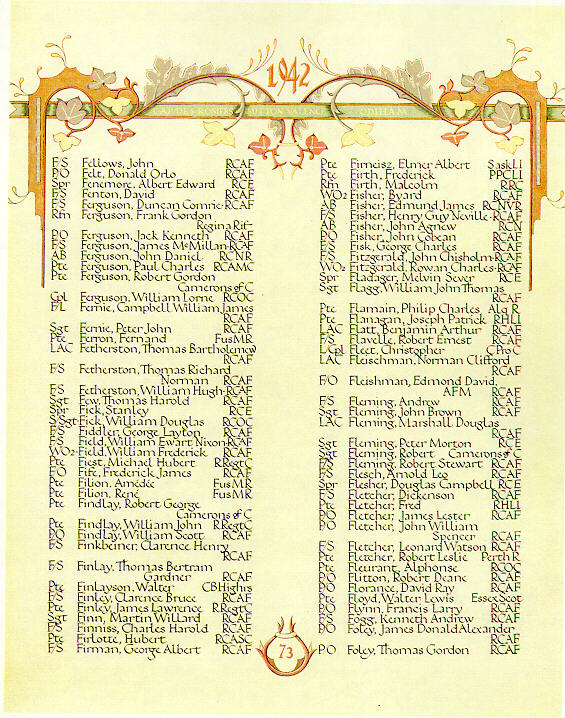 1942
ODIHAM
F/S Fellows, John RCAF
P/O Felt, Donald Orlo RCAF
Spr Fenemore, Albert Edward RCE
F/S Fenton, David RCAF
F/S Ferguson, Duncan Comrie RCAF
Rfn Ferguson, Frank Gordon
Regina Rif
P/O Ferguson, Jack Kenneth RCAF
F/S Ferguson, James McMillan RCAF
AB Ferguson, John Daniel RCNR
Pte Ferguson, Paul Charles RCAMC
Pte Ferguson, Robert Gordon
Camerons of C
Cpl Ferguson, William Lorne RCOC
F/L Fernie, Campbell William James
RCAF
Sgt Fernie, Peter John RCAF
Pte Ferron, Fernand Fus MR
LAC Fetherston, Thomas Bartholemew
RCAF
F/S Fetherston, Thomas Richard
Norman RCAF
F/S Fetherston, William Hugh RCAF
Sgt Few, Thomas Harold RCAF
Spr Fick, Stanley RCE
S/Sgt Fick, William Douglas RCOC
F/S Fiddler, George Layton RCAF
F/S Field, William Ewart Nixon RCAF
WO2 Field, William Frederick RCAF
Pte Fiest, Michael Hubert R Regt C
F/O Fife, Frederick James RCAF
Pte Filion, Amédée Fus MR
Pte Filion, René Fus MR
Pte Findlay, Robert George
Camerons of C
Pte Findlay, William John R Regt C
P/O Findlay, William Scott RCAF
F/S Finkbeiner, Clarence Henry
RCAF
F/S Finlay, Thomas Bertram
Gardner RCAF
Pte Finlayson, Walter CB Highrs
F/S Finley, Clarence Bruce RCAF
Pte Finley, James Lawrence R Regt C
Sgt Finn, Martin Willard RCAF
F/S Finniss, Charles Harold RCAF
Pte Firlotte, Hubert RCASC
F/S Firman, George Albert RCAF
Pte Firneisz, Elmer Albert Sask LI
Pte Firth, Frederick PPCLI
Rfn Firth, Malcolm RRC
WO2 Fisher, Byard RCAF
AB Fisher, Edmund James RCNVR
F/S Fisher, Henry Guy Neville RCAF
AB Fisher, John Agnew RCN
P/O Fisher, John Cobean RCAF
F/S Fisk, George Charles RCAF
F/S Fitzgerald, John Chisholm RCAF
WO2 Fitzgerald, Rowan Charles RCAF
Spr Fladager, Melvin Sever RCE
Sgt Flagg, William John Thomas
RCAF
Pte Flamain, Philip Charles Alg R
Pte Flanagan, Joseph Patrick RHLI
LAC Flatt, Benjamin Arthur RCAF
F/S Flavelle, Robert Ernest RCAF
L/Cpl Fleet, Christopher C Pro C
LAC Fleischman, Norman Clifford
RCAF
F/O Fleishman, Edmond David,
AFM RCAF
F/S Fleming, Andrew RCAF
Sgt Fleming, John Brown RCAF
LAC Fleming, Marshall Douglas
RCAF
Sgt Fleming, Peter Morton RCE
Sgt Fleming, Robert Camerons of C
F/S Fleming, Robert Stewart RCAF
F/S Flesch, Arnold Leo RCAF
Spr Flesher, Douglas Campbell RCE
F/S Fletcher, Dickenson RCAF
Pte Fletcher, Fred RHLI
P/O Fletcher, James Lester RCAF
P/O Fletcher, John William
Spencer RCAF
F/S Fletcher, Leonard Watson RCAF
Pte Fletcher, Robert Leslie Perth R
Pte Fleurant, Alphonse RCOC
P/O Flitton, Robert Deane RCAF
P/O Florance, David Ray RCAF
Pte Floyd, Walter Lewis Essex Scot
P/O Flynn, Francis Larry RCAF
F/S Fogg, Kenneth Andrew RCAF
P/O Foley, James Donald Alexander
RCAF
P/O Foley, Thomas Gordon RCAF
73